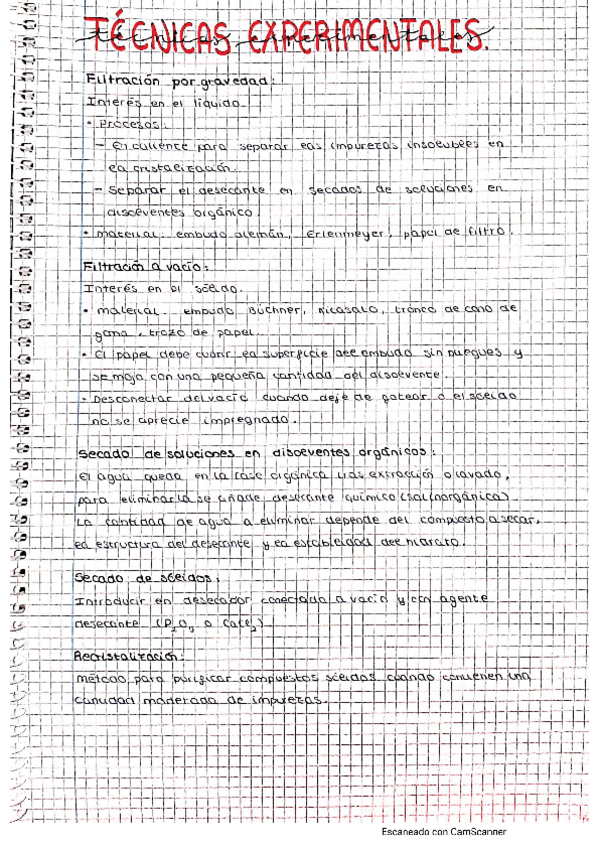 TÉCNICAS EXPERIMENTALES.
Filtración por gravedad:
Interés en el líquido.
• Procesos:
- En caliente para separar las impurezas insolubles en
la cristalización.
- Separar el desecante en secados de soluciones en
disolventes orgánico.
• Material: embudo alemán, Erlenmeyer, papel de filtro.
Filtración a vacío:
Interés en el sólido.
• Material: embudo Büchner, kitasato, tronco de cono de
goma, trozo de papel.
• El papel debe cubrir la superficie del embudo sin pliegues y
se moja con una pequeña cantidad del disolvente.
• Desconectar del vacío cuando deje de gotear o el sólido
no se aprecie impregnado.
Secado de soluciones en disolventes orgánicos:
El agua queda en la fase orgánica tras extracción o lavado,
para eliminarla se añade desecante químico (sal inorgánica).
La cantidad de agua a eliminar depende del compuesto a secar,
la estructura del desecante y la estabilidad del hidrato.
Secado de sólidos:
Introducir en desecador conectado a vacío y con agente
desecante
Recristalización:
método para purificar compuestos sólidos cuando contienen una
cantidad moderada de impurezas.
Escaneado con CamScanner